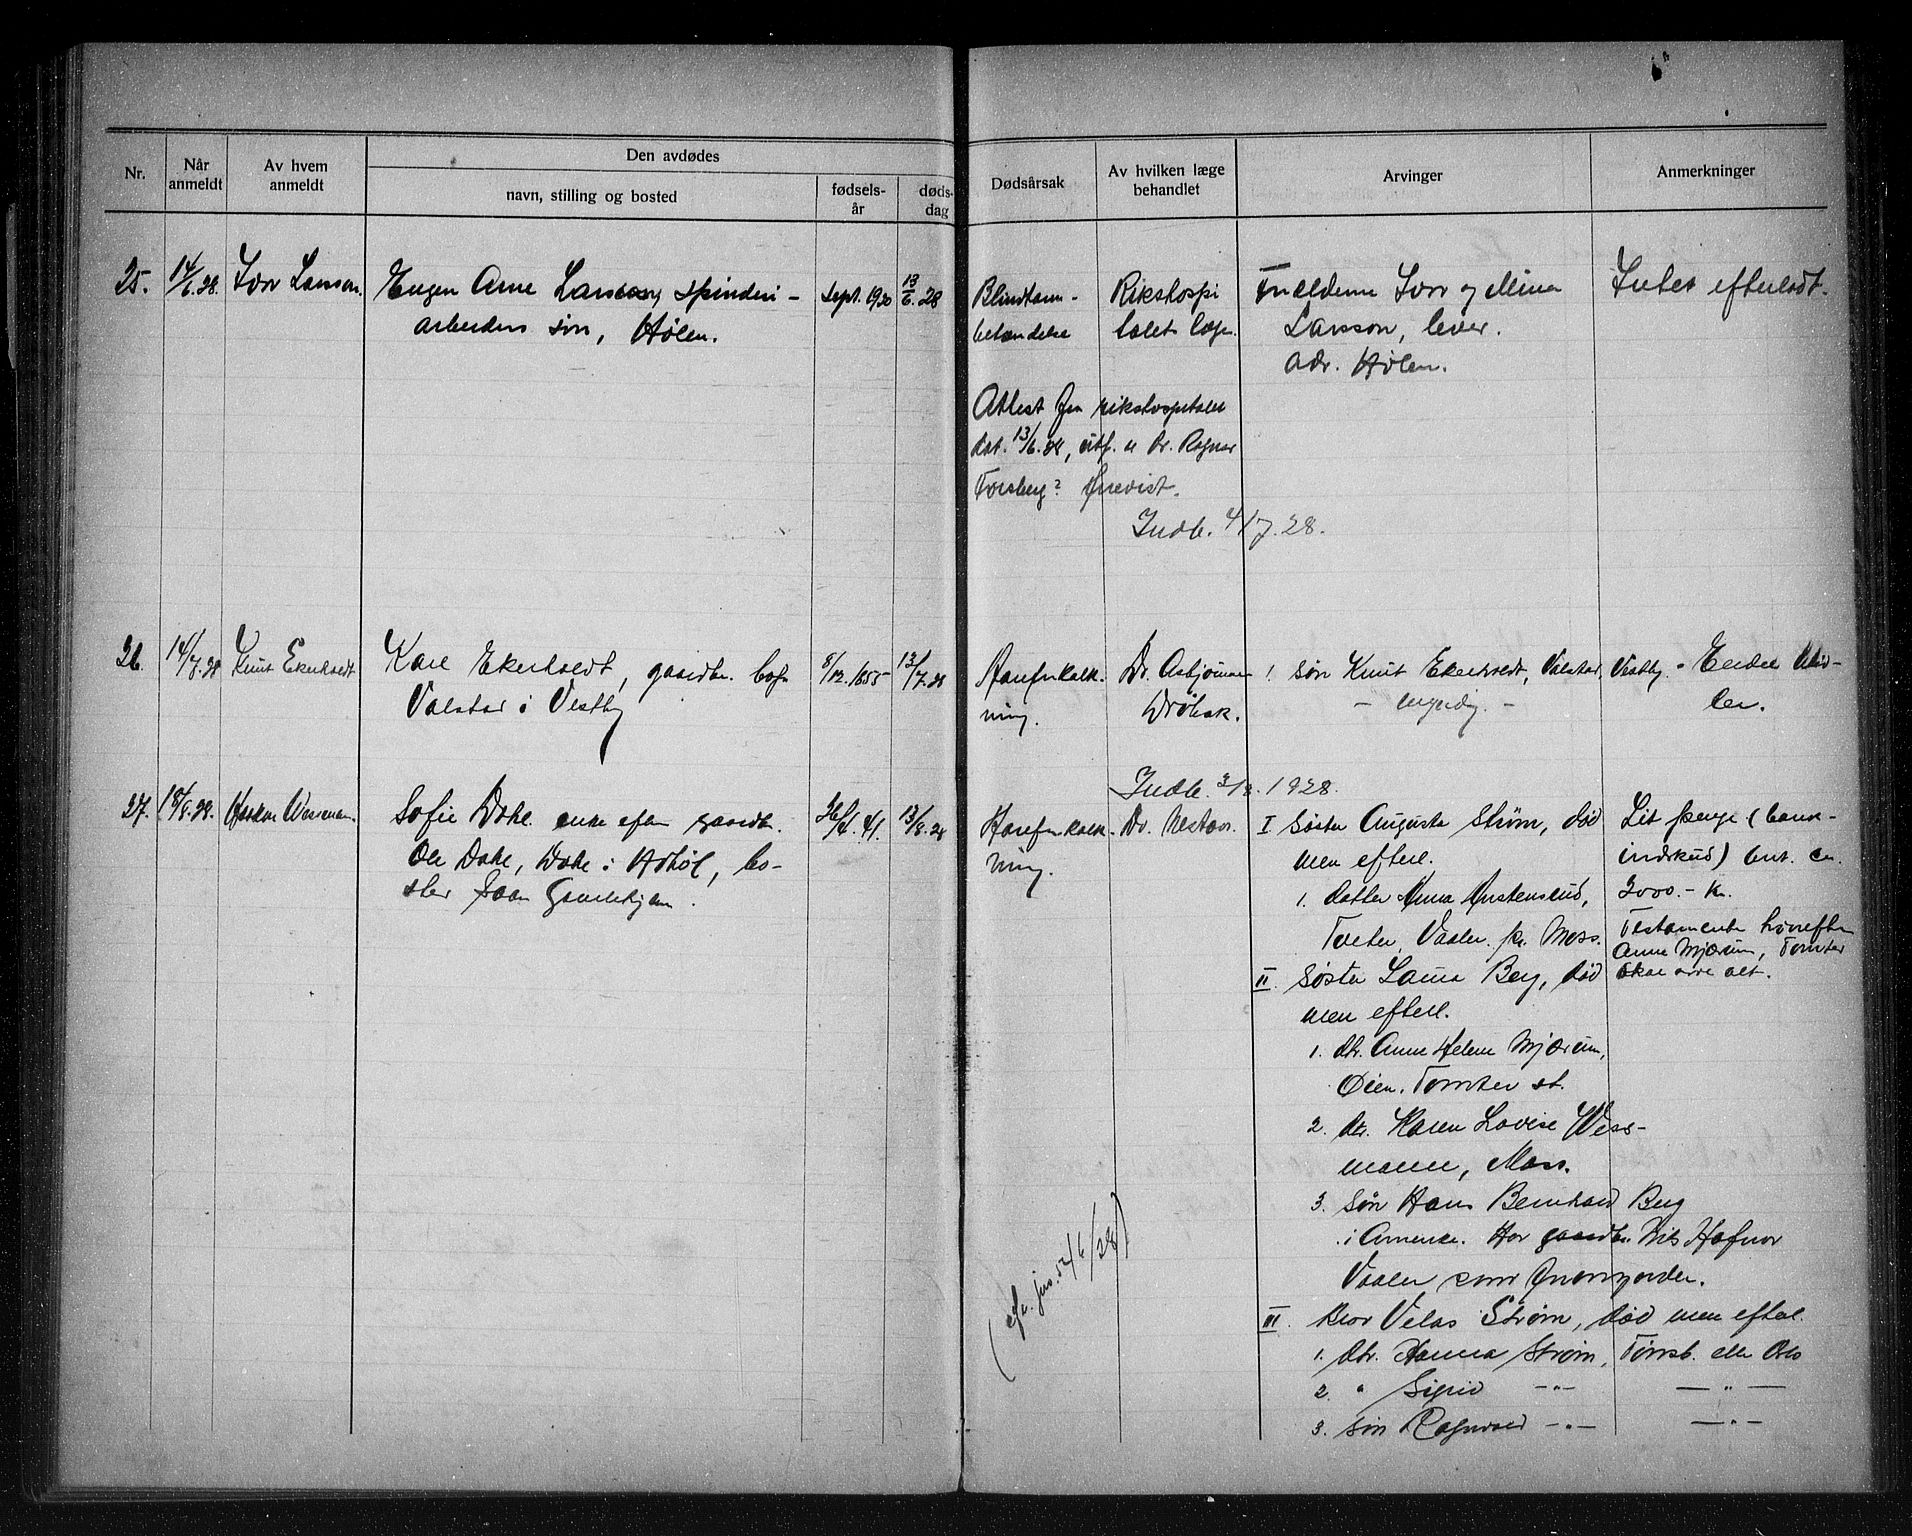 Nr.
Når anmeldt
Av hvem anmeldt
Den avdødes
navn, stilling og bosted
fødsels-år
døds-dag
Dødsårsak
Av hvilken læge behandlet
Arvinger
Anmerkninger
25. 14/6.28. Ivar Larsson.
Eugen Arne Larsson, spinderi-
arbeiders søn, Hølen.
Sept. 1920
13/6.28
Blindtarm-
betændelse
Rikshospi
talets læge.
Forældrene Ivar og Mina
Larsson, lever.
Adr. Hølen.
Intet efterladt.
Attest fra rikshospitalet
dat. 13/6.28, utf. a Dr. Ragnar
Forsberg? Qvist.
Indb. 4/7.28.
26. 14/7.28 Knut Ekerholdt
Karl Ekerholdt, gaardbr. bof
Valstad i Vestby
8/12.1855
13/7.28
Aarefrkalk-
ning.
Dr. Asbjørnsen
Drøbak.
1. søn Knut Ekerholdt, Valstad, Vestby.
- myndig. -
Indb. 3/8.1928.
27. 18/8.28. Haakon Wessmann.
Sofie Dahl enke efter gaardbr.
Ole Dahl, Dahl i Hobøl, bo-
sted Saan Gamlehjem.
26/4.41.
13/8.28
Aarefrkalk-
ning.
Dr. Nestaas.
I Søster Augusta Strøm, død
men efterl.
1. datter Anna
Tveter, Vaaler. pr. Moss.
II. Søster Laura Berg, død
men efterl.
1. dtr. Anne Helene Mjærum,
Øien. Tomter st.
2. dtr. Karen Lovise Wess-
mann, Moss.
3. søn Hans Bernhard Berg
i Amerika. Har gaardbr. Nils Hafnor
Vaaler som
III. Bror Velas Strøm, død men efterl.
1. dtr. Hanna Strøm, Tønsb. eller Oslo
2. " Sigrid -"- -"-
3. søn Ragnvald -"- -"-
Lit penge (bank-
indskud) ca.
2000.- kr.
Testamente hvorefter
Anne Mjærum, Tomter
skal arve alt.